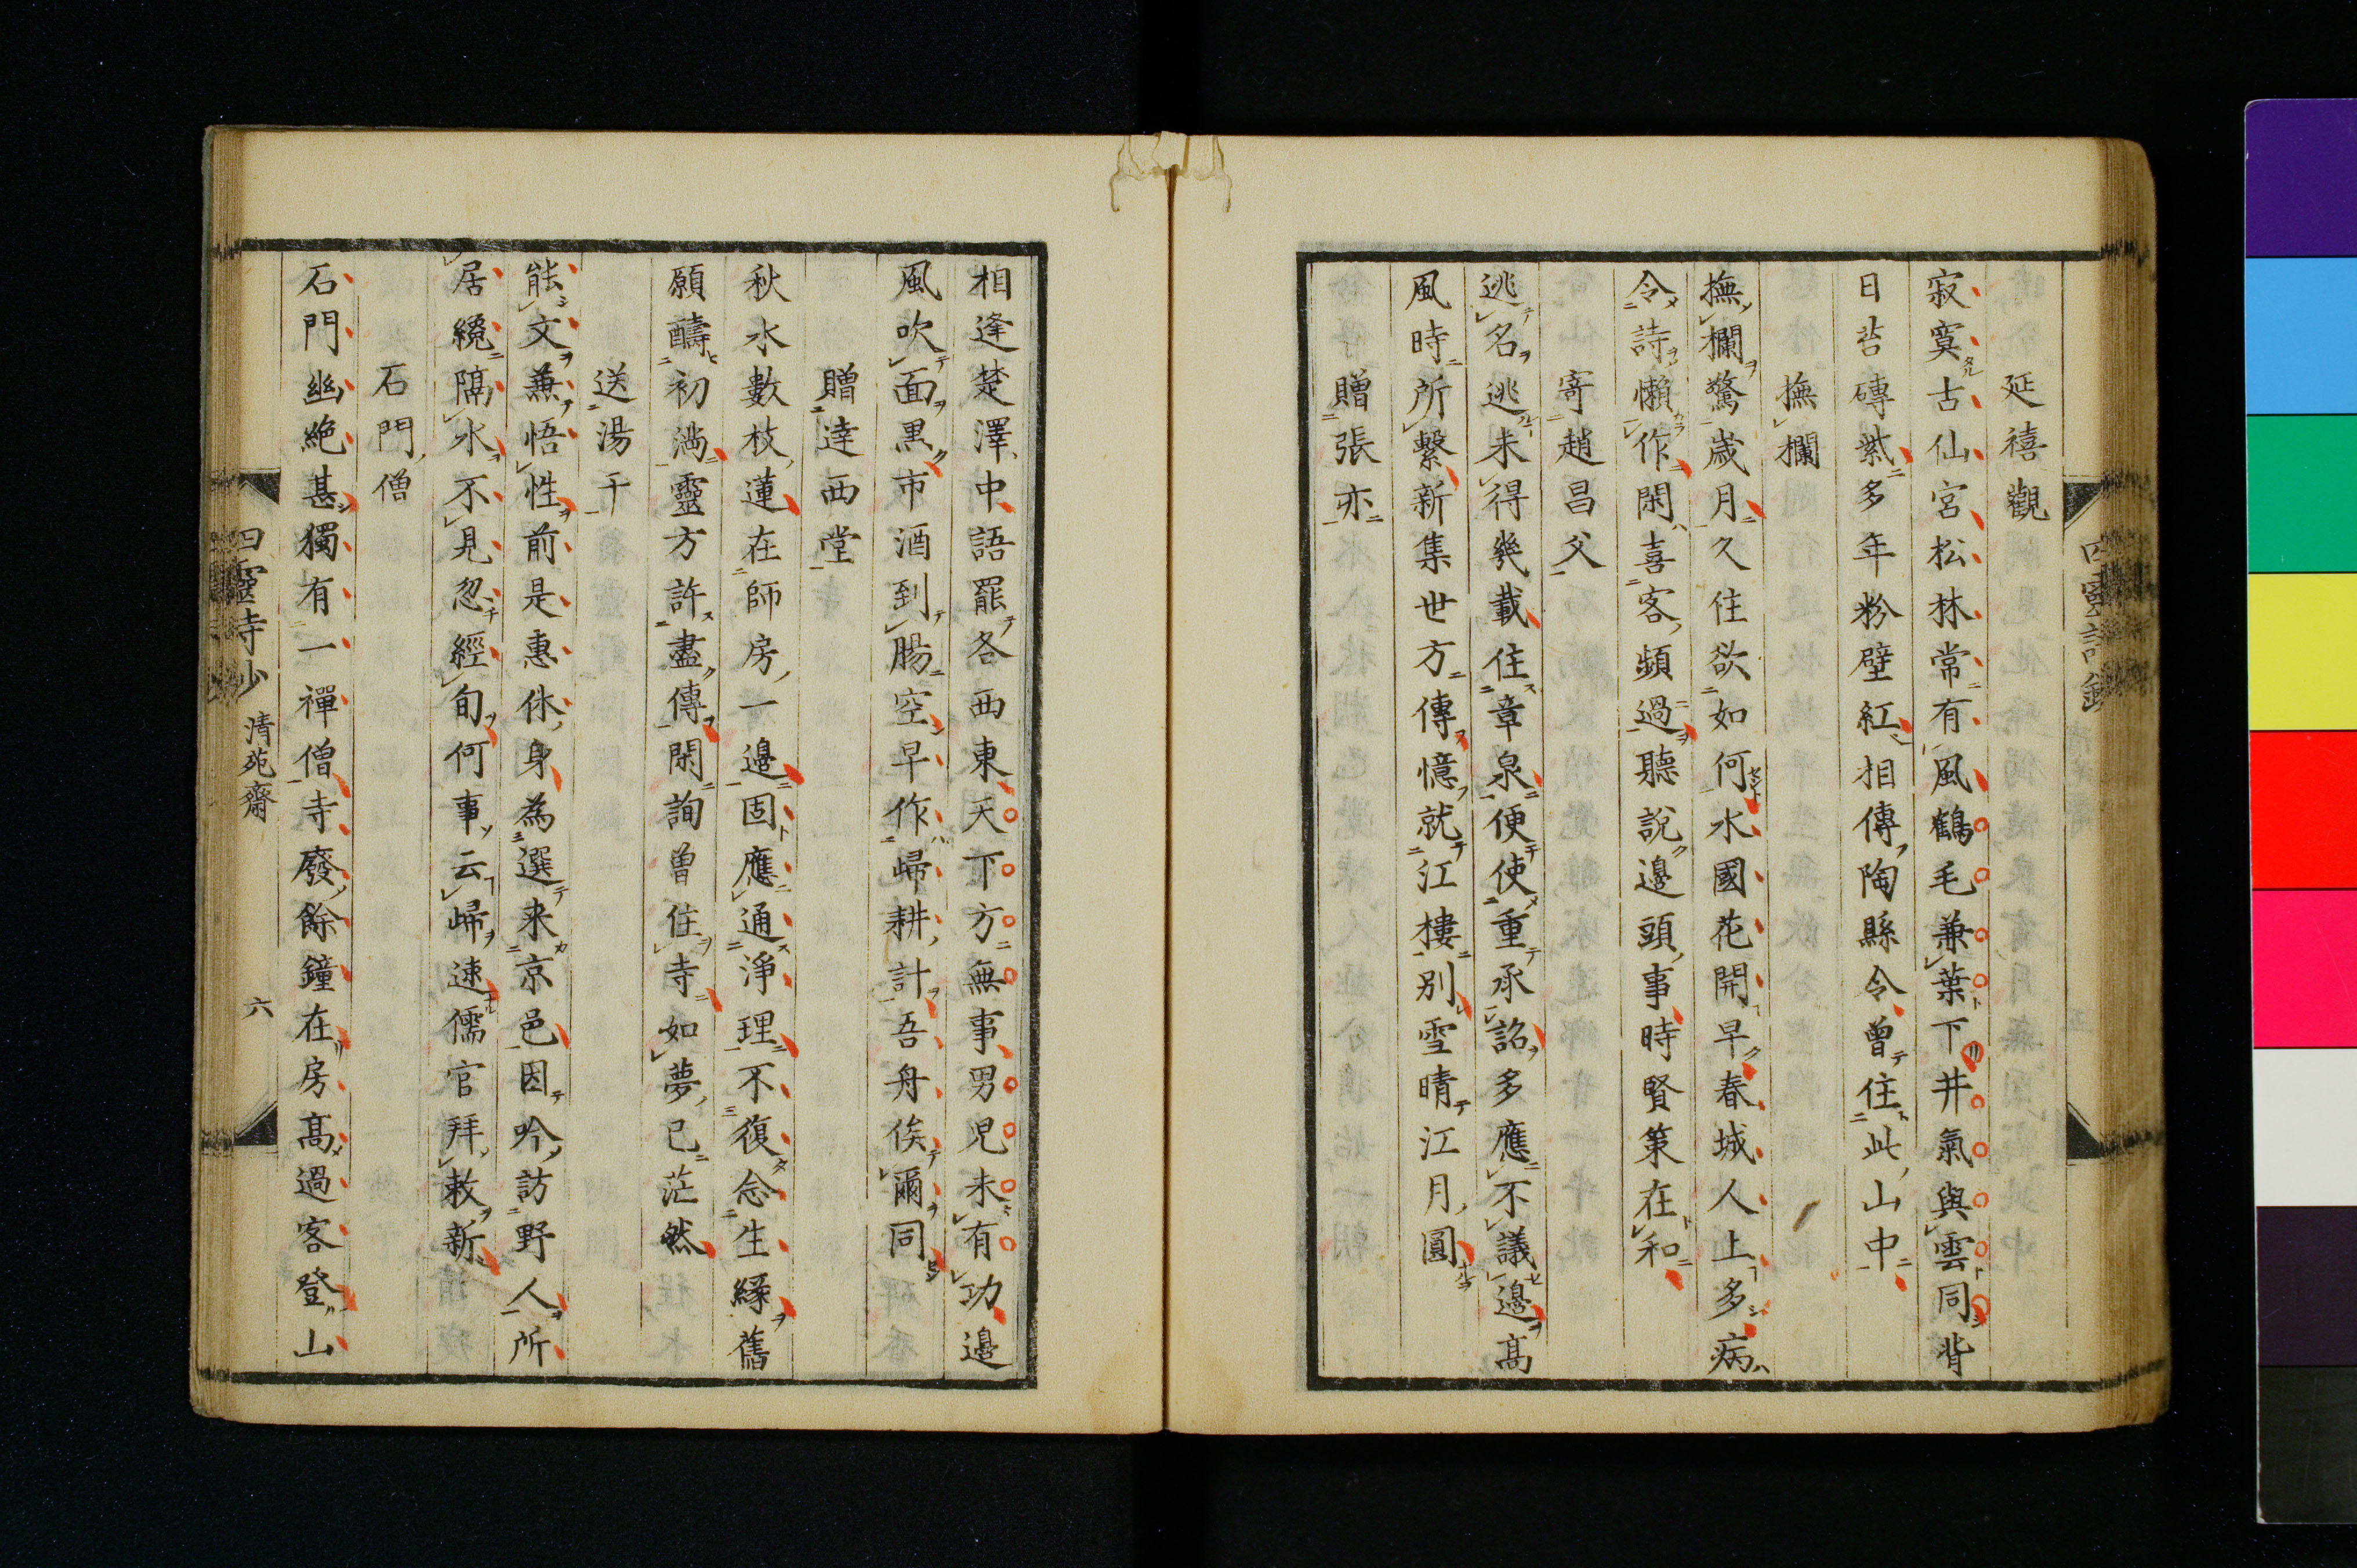 延禧觀
寂寞古仙宮松林常有風鶴毛兼葉下井氣與雲同背
日苔磚紫多年粉壁紅相傳陶縣令曾住此山中
撫欄
撫欄驚歳月久住欲如何水國花開早春城人上多病
令詩懶作閑喜客頻過聽說邊頭事時賢策在和
寄趙昌父
逃名逃未得幾載住章泉便使重承詔多應不議邊高
風時所繫新集世方傳憶就江樓別雪晴江月圓
贈張亦
相逢楚澤中語罷各西東天下方無事男兒未有功邊
風吹面黒市酒到腸空早作歸耕計吾舟俟爾同
贈達西堂
秋水數枝蓮在師房一邊固應通淨理不復念生縁舊
願醻初満靈方許盡傳閑詢曽住寺如夢已茫然
送湯干
能文兼悟性前是惠休身為選来京邑因吟訪野人所
居纔隔水不見忽經旬何事云歸速儒官拜敕新
石門僧
石門幽絶甚獨有一禪僧寺廢餘鐘在房高過客登山
四靈寺少 清苑齋 六